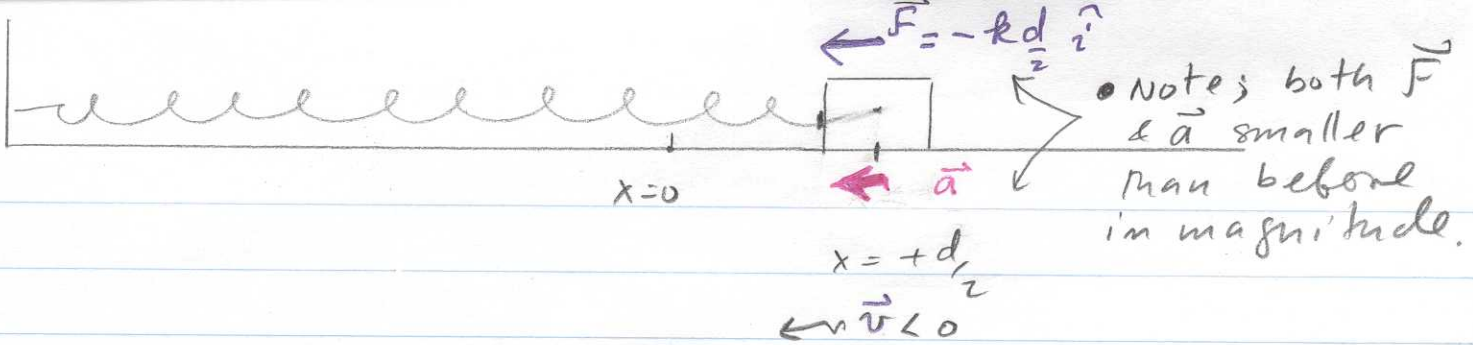 F⃗ = -k d/2 î
• Note; both F⃗
& a⃗ smaller
than before
in magnitude.
x=0
a⃗
x = +d/2
← v⃗ < 0